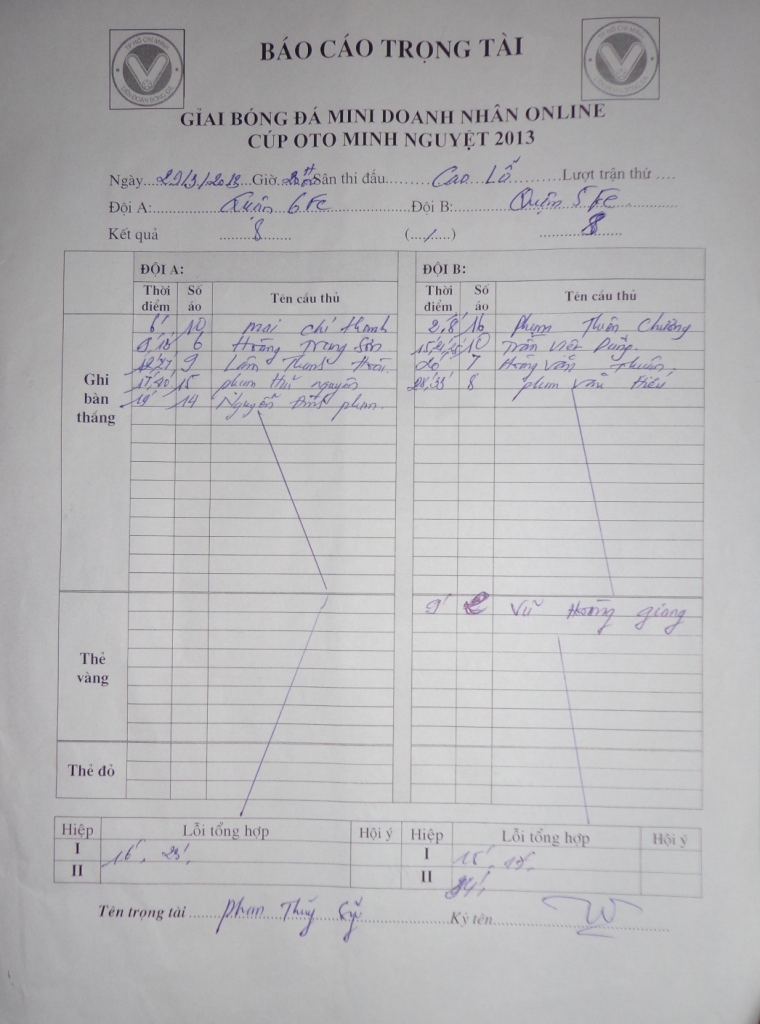 TP HỒ CHÍ MINH
LIÊN ĐOÀN BÓNG ĐÁ
BÁO CÁO TRỌNG TÀI
GIẢI BÓNG ĐÁ MINI DOANH NHÂN ONLINE
CÚP OTO MINH NGUYỆT 2013
Ngày...29/3/2013 Giờ Sân thi đấu........ Cao Lỗ .........Lượt trận thứ ....
Đội A: Quận 6 FC Đội B: Quận 5 FC
Kết quả 8 (.../....) 8
ĐỘI A: ĐỘI B:
Thời điểm Số áo Tên cầu thủ Thời điểm Số áo Tên cầu thủ
Ghi bàn thắng
6' 10 mai chí thanh 2,8' 16 phạm Thuận Chương
6 Hoàng Trung Sơn 10 Trần Viết Dũng
12,27' 9 Lâm Thanh 20' 7 Hoàng Văn Thuấn
17,20' 15 phạm Hải nguyên 28,33' 8 phan Văn Hiếu
19' 14 Nguyễn Đình phan
Thẻ vàng
9' Vũ Hoàng giang
Thẻ đỏ
Hiệp Lỗi tổng hợp Hội ý Hiệp Lỗi tổng hợp Hội ý
I 16', 23' I 15', 17'
II II 34'
Tên trọng tài phan Thúy Sỹ Ký tên